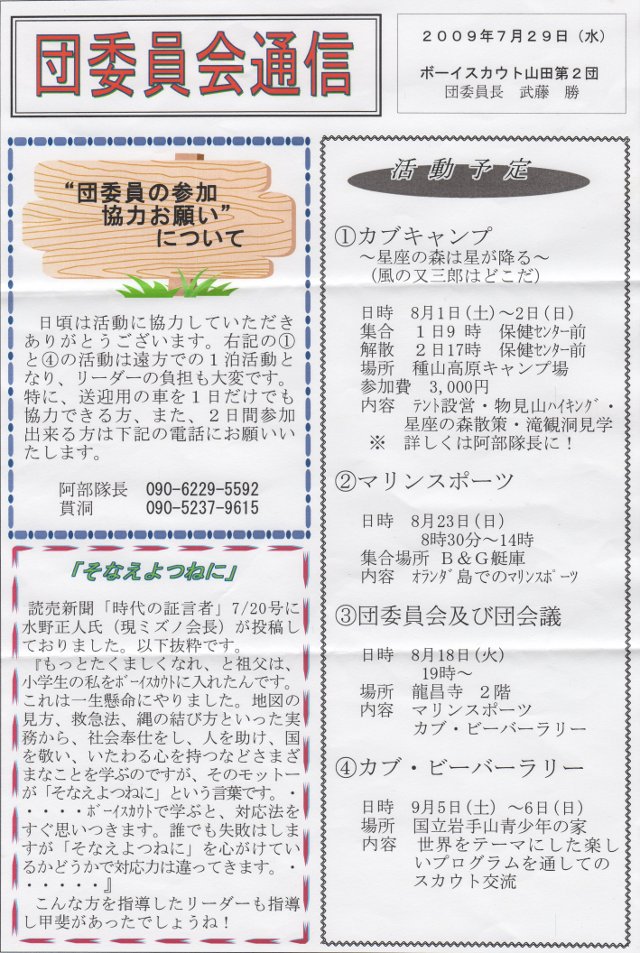 団委員会通信
2009年7月29日（水）
ボーイスカウト山田第2団
団委員長　武藤　勝
“団委員の参加
協力お願い”
について
日頃は活動に協力していただき
ありがとうございます。右記の①
と④の活動は遠方での１泊活動と
なり、リーダーの負担も大変です。
特に、送迎用の車を１日だけでも
協力できる方、また、２日間参加
出来る方は下記の電話にお願いい
たします。
阿部隊長　090-6229-5592
貫洞　　　090-5237-9615
「そなえよつねに」
読売新聞「時代の証言者」7/20号に
水野正人氏（現ミズノ会長）が投稿し
ておりました。以下抜粋です。
『もっとたくましくなれ、と祖父は、
小学生の私をﾎﾞｰｲｽｶｳﾄに入れたんです。
これは一生懸命にやりました。地図の
見方、救急法、縄の結び方といった実
務から、社会奉仕をし、人を助け、国
を敬い、いたわる心を持つなどさまざ
まなことを学ぶのですが、そのモットー
が「そなえよつねに」という言葉です。・
・・・・ﾎﾞｰｲｽｶｳﾄで学ぶと、対応法を
すぐ思いつきます。誰でも失敗はしま
すが「そなえよつねに」を心がけてい
るかどうかで対応力は違ってきます。・
・・・・・』
こんな方を指導したリーダーも指導
し甲斐があったでしょうね！
活動予定
①カブキャンプ
～星座の森は星が降る～
（風の又三郎はどこだ）
日時　8月1日(土)～2日(日)
集合　１日9 時　保健ｾﾝﾀｰ前
解散　２日17時　保健ｾﾝﾀｰ前
場所　種山高原キャンプ場
参加費　3,000円
内容　ﾃﾝﾄ設営・物見山ﾊｲｷﾝｸﾞ・
星座の森散策・滝観洞見学
※　詳しくは阿部隊長に！
②マリンスポーツ
日時　8月23日(日)
8時30分～14時
集合場所　Ｂ＆Ｇ艇庫
内容　ｵﾗﾝﾀﾞ島でのﾏﾘﾝｽﾎﾟｰﾂ
③団委員会及び団会議
日時　8月18日(火)
19時～
場所　龍昌寺　２階
内容　マリンスポーツ
カブ・ビーバーラリー
④カブ・ビーバーラリー
日時　9月5日(土) ～6日(日)
場所　国立岩手山青少年の家
内容　世界をテーマにした楽し
いプログラムを通しての
スカウト交流